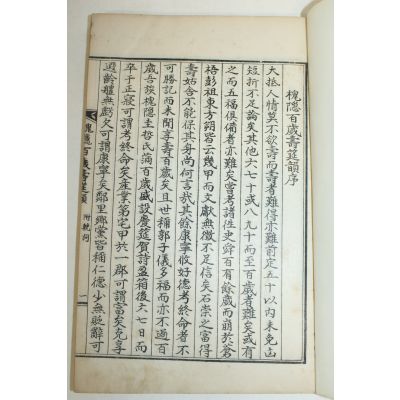 槐隱百歲壽筵韻序
大抵人情莫不欲壽而壽者難得亦難前定五十以內未免山
短折不足論矣其他六七十或八九十而至百歲者難矣或有
之而五福俱備者亦難矣嘗考諸往史舜百有餘歲而崩於蒼
梧彭祖東方朔皆云幾甲而文獻無徵不足信矣石崇之富得
壽姑舍不能保其身尚何言哉其餘康寧攸好德考終命者不
可勝記而未聞享壽百歲矣且世稱郭子儀多福而亦不過百
歲吾族槐隱圭哲氏滿百歲咸設慶筵賀詩盈箱後六七日而
卒于正寢可謂考終命矣産業第宅甲於一鄕可謂富矣克享
遐齡軆無虧欠可謂康寧矣鄰里鄕黨皆稱仁德少無貶辭可
槐隱百歲壽筵韻 附輓詞 一